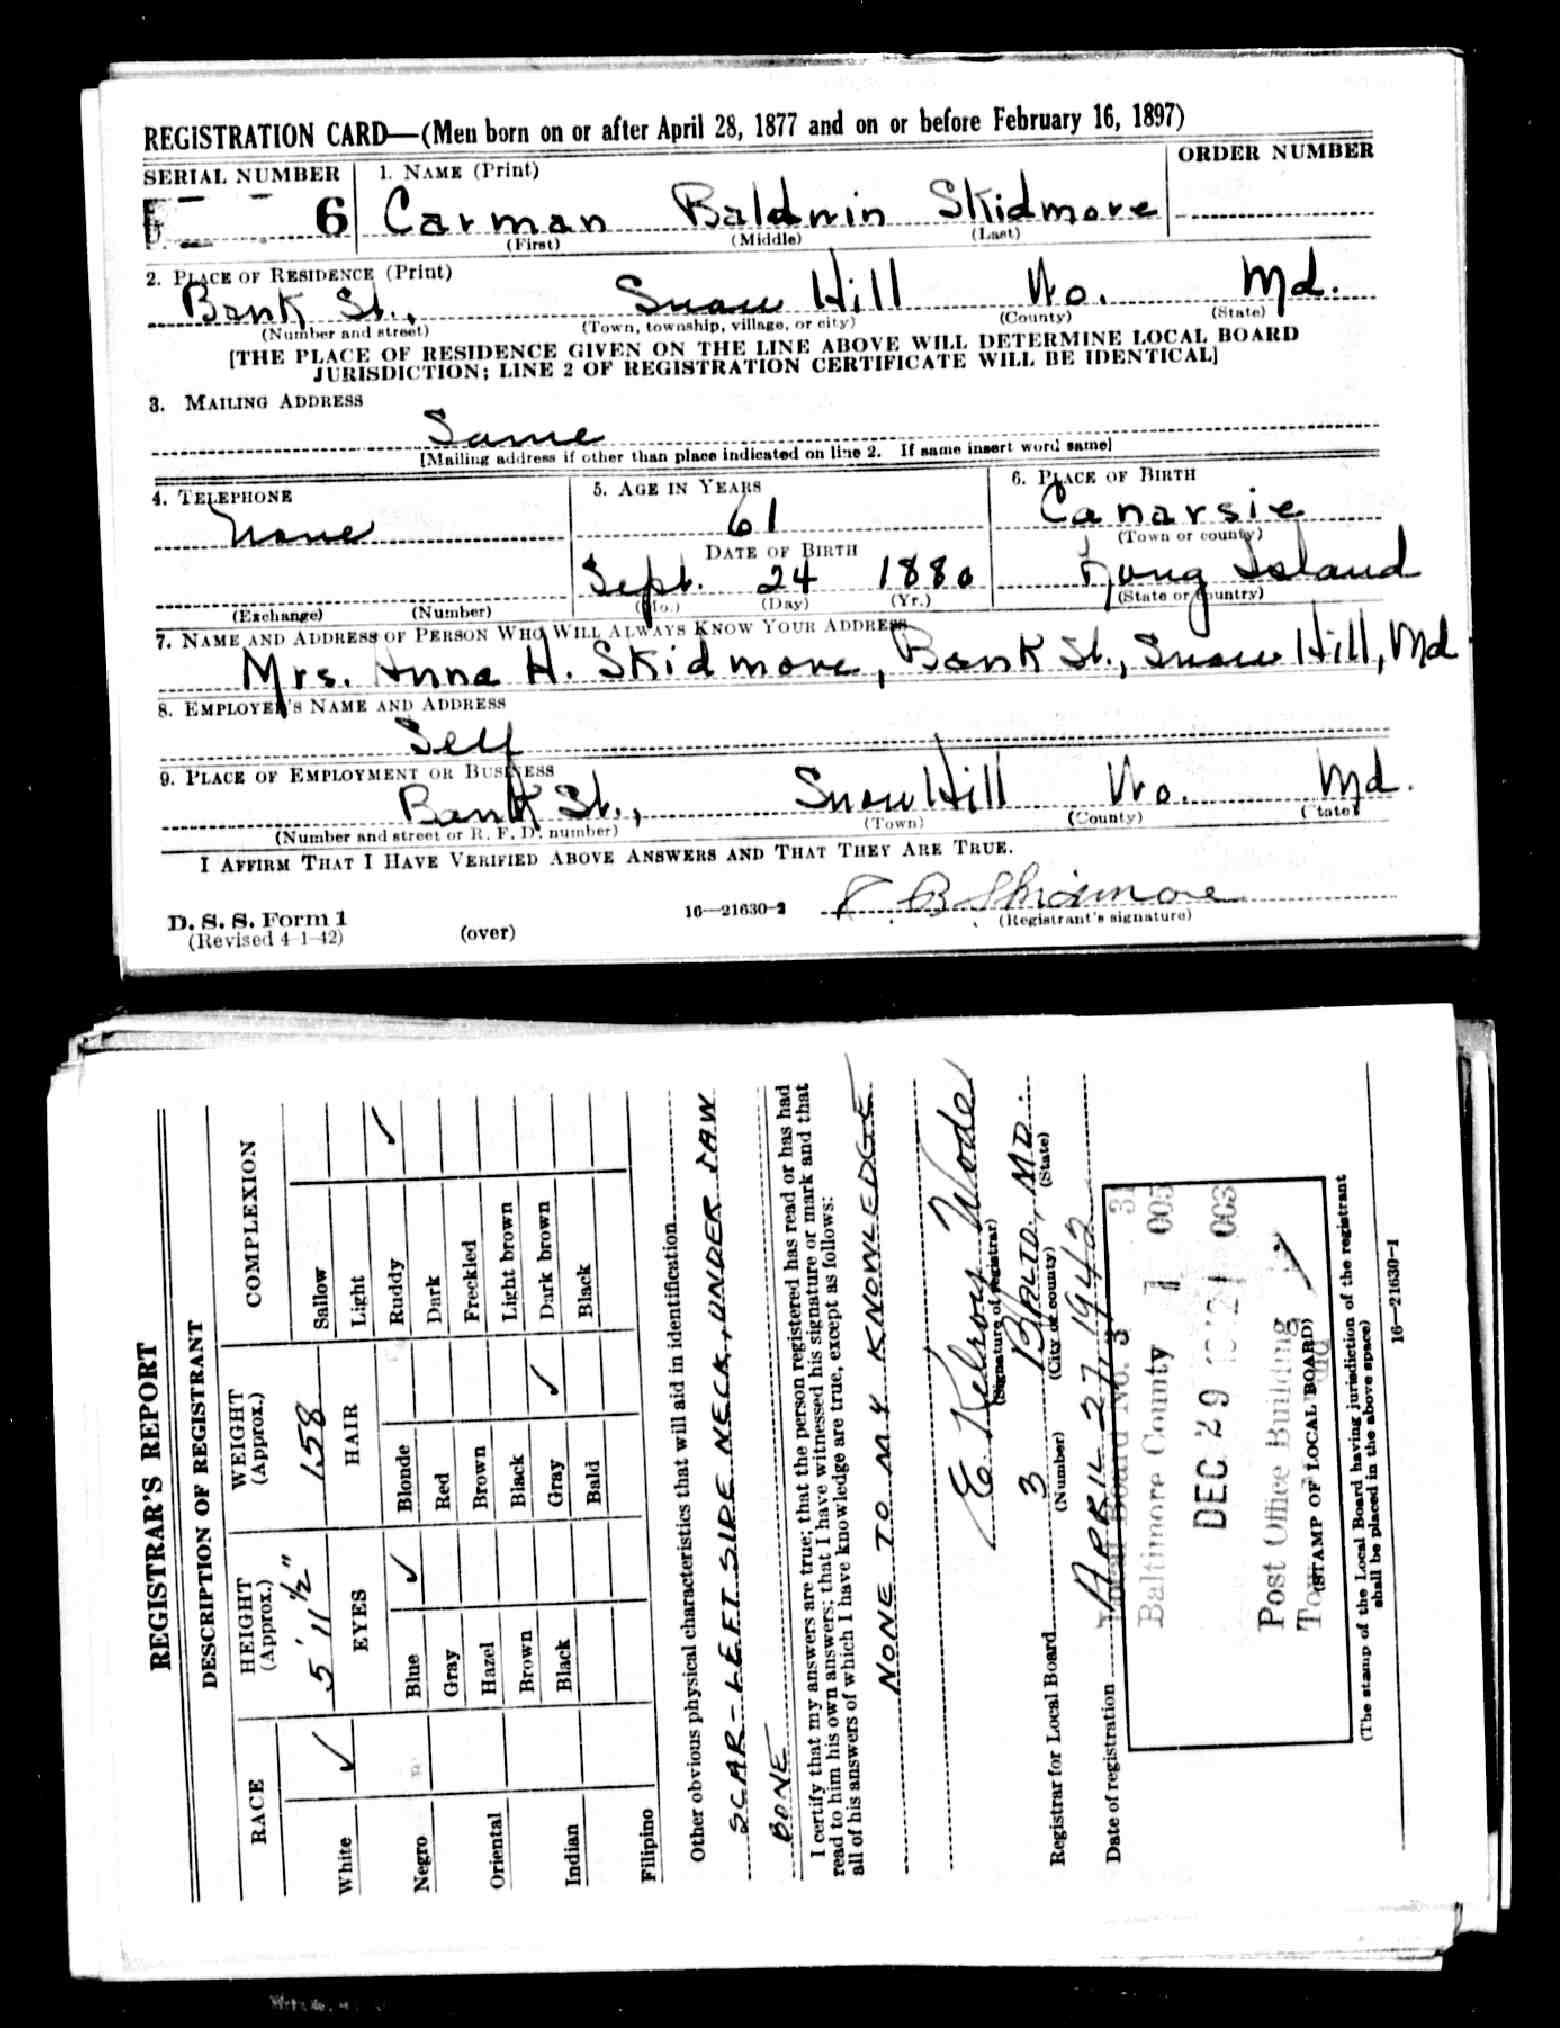 REGISTRATION CARD—(Men born on or after April 28, 1877 and on or before February 16, 1897)
SERIAL NUMBER
1. NAME (Print)
ORDER NUMBER
6
Carman Baldwin Skidmore
(First) (Middle) (Last)
2. PLACE OF RESIDENCE (Print)
Bank St., Snow Hill Wo. Md.
(Number and street) (Town, township, village, or city) (County) (State)
[THE PLACE OF RESIDENCE GIVEN ON THE LINE ABOVE WILL DETERMINE LOCAL BOARD
JURISDICTION; LINE 2 OF REGISTRATION CERTIFICATE WILL BE IDENTICAL]
3. MAILING ADDRESS
Same
[Mailing address if other than place indicated on line 2. If same insert word same]
4. TELEPHONE
None
(Exchange) (Number)
5. AGE IN YEARS
61
DATE OF BIRTH
Sept. 24 1880
(Mo.) (Day) (Yr.)
6. PLACE OF BIRTH
Canarsie
(Town or county)
Long Island
(State or country)
7. NAME AND ADDRESS OF PERSON WHO WILL ALWAYS KNOW YOUR ADDRESS
Mrs. Anna H. Skidmore, Bank St., Snow Hill, Md
8. EMPLOYER'S NAME AND ADDRESS
Self
9. PLACE OF EMPLOYMENT OR BUSINESS
Bank St., Snow Hill Wo. Md.
(Number and street or R. F. D. number) (Town) (County) (State)
I AFFIRM THAT I HAVE VERIFIED ABOVE ANSWERS AND THAT THEY ARE TRUE.
C B Skidmore
D. S. S. Form 1
(Revised 4-1-42)
(over)
16—21630-2
(Registrant's signature)
REGISTRAR'S REPORT
DESCRIPTION OF REGISTRANT
RACE
HEIGHT
(Approx.)
WEIGHT
(Approx.)
COMPLEXION
5' 11 ½"
158
EYES
HAIR
White ✓
Negro
Oriental
Indian
Filipino
Blue ✓
Gray
Hazel
Brown
Black
Blonde
Red
Brown
Black
Gray ✓
Bald
Sallow
Light
Ruddy ✓
Dark
Freckled
Light brown
Dark brown
Black
Other obvious physical characteristics that will aid in identification
SCAR-LEFT SIDE NECK, UNDER JAW
BONE
I certify that my answers are true; that the person registered has read or has had
read to him his own answers; that I have witnessed his signature or mark and that
all of his answers of which I have knowledge are true, except as follows:
NONE TO MY KNOWLEDGE
E. Kelroy Wode
(Signature of registrar)
Registrar for Local Board 3 BALTO. MD.
(Number) (City or county) (State)
Date of registration APRIL 27, 1942
Local Board No. 3 31
Baltimore County 1 005
DEC 29 1942 1 003
Post Office Building
(STAMP OF LOCAL BOARD)
(The stamp of the Local Board having jurisdiction of the registrant
shall be placed in the above space)
16—21630-1